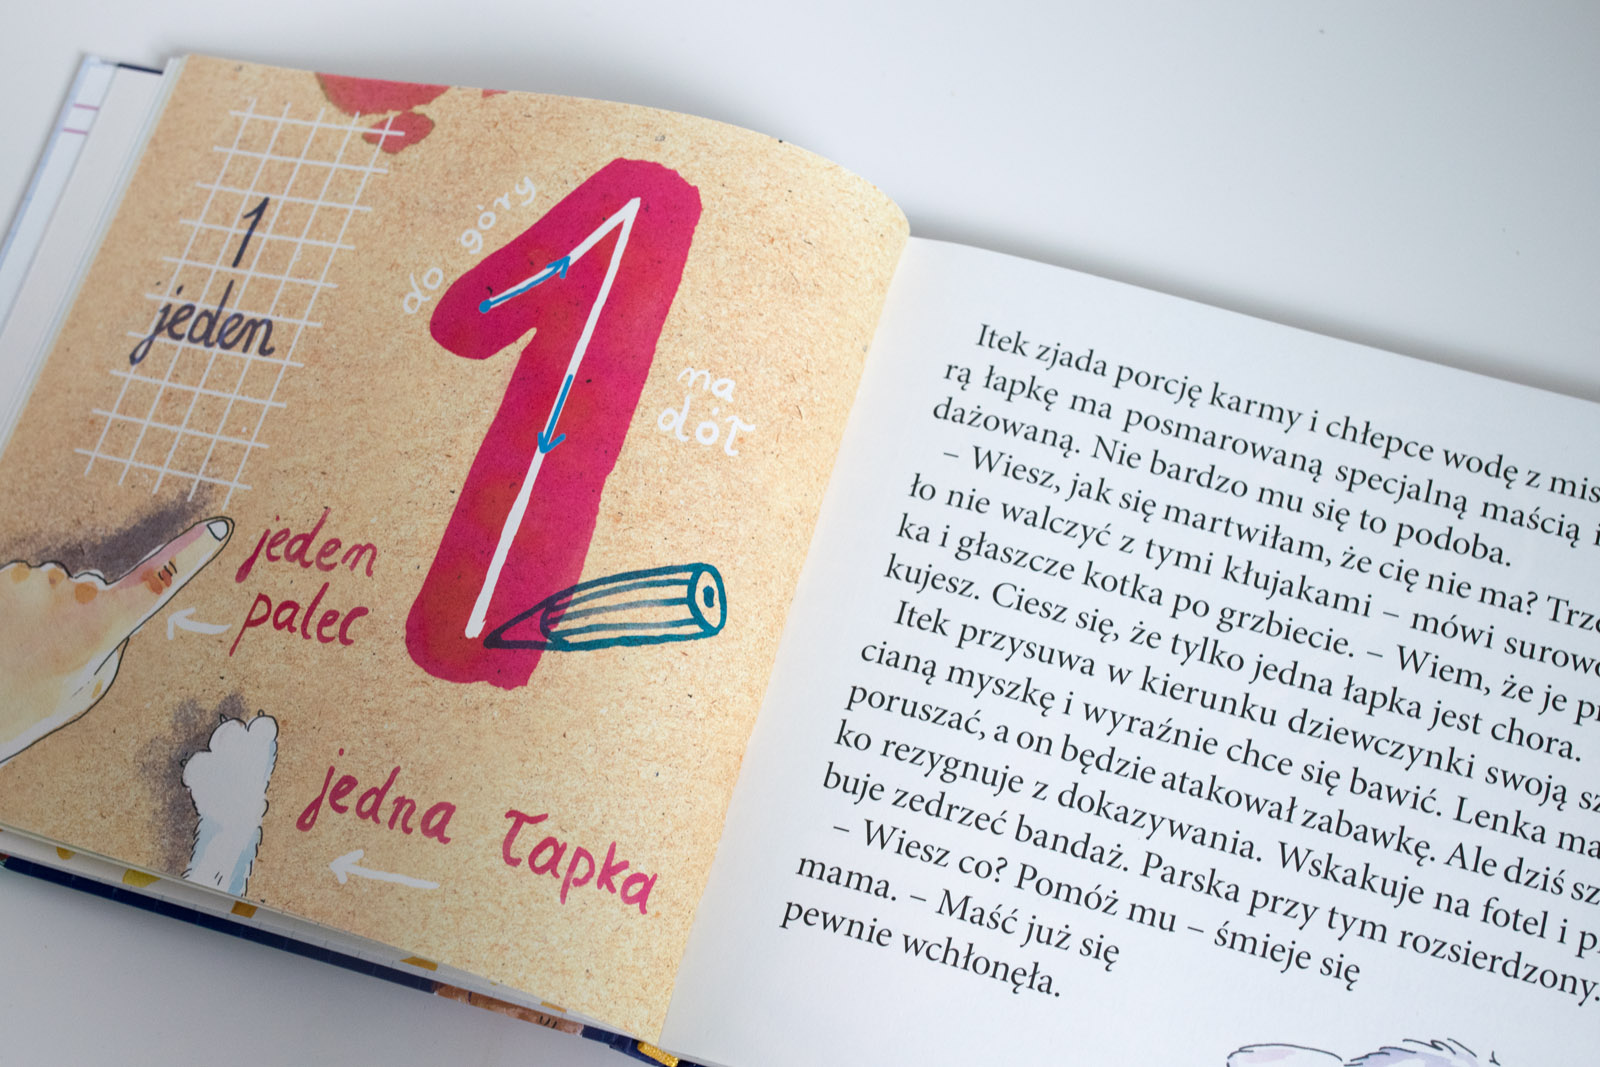 1
jeden
do góry
na
dół
jeden
palec
jedna łapka
Itek zjada porcję karmy i chłepce wodę z mis
rą łapkę ma posmarowaną specjalną maścią i
dażowaną. Nie bardzo mu się to podoba.
– Wiesz, jak się martwiłam, że cię nie ma? Trze
ło nie walczyć z tymi kłujakami – mówi surowo
ka i głaszcze kotka po grzbiecie. – Wiem, że je pr
kujesz. Ciesz się, że tylko jedna łapka jest chora.
Itek przysuwa w kierunku dziewczynki swoją sz
cianą myszkę i wyraźnie chce się bawić. Lenka ma
poruszać, a on będzie atakował zabawkę. Ale dziś sz
ko rezygnuje z dokazywania. Wskakuje na fotel i p
buje zedrzeć bandaż. Parska przy tym rozsierdzony.
– Wiesz co? Pomóż mu – śmieje się
mama. – Maść już się
pewnie wchłonęła.